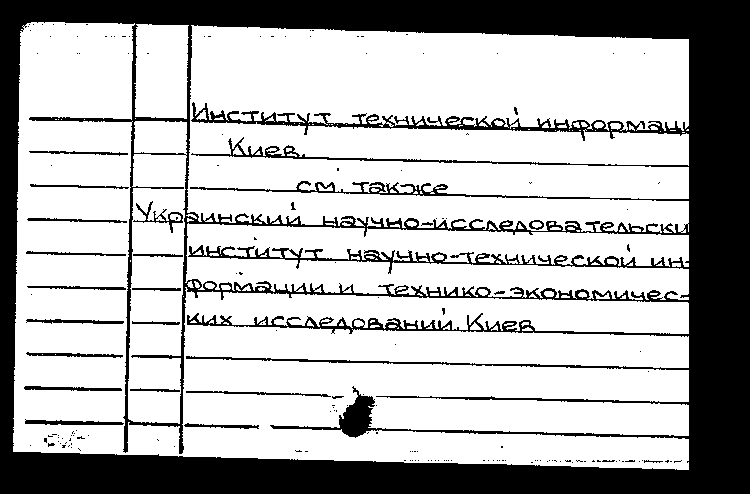 Институт технической информаци
Киев.
см. также
Украинский научно-исследовательски
институт научно-технической ин-
формации и технико-экономичес-
ких исследований. Киев